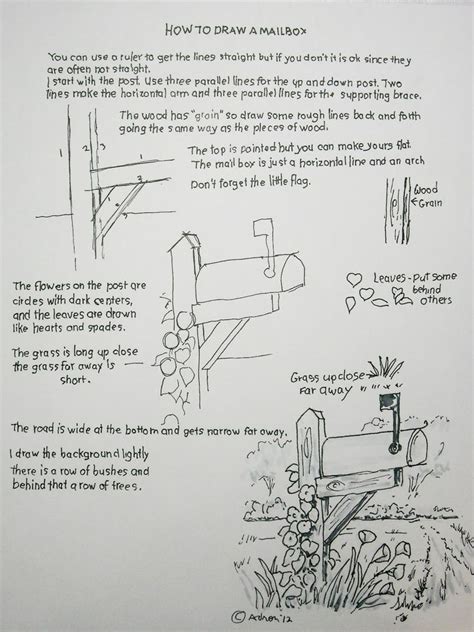 HOW TO DRAW A MAILBOX
You can use a ruler to get the lines straight but if you don't it is ok since they
are often not straight.
I start with the post. Use three parallel lines for the up and down post. Two
lines make the horizontal arm and three parallel lines for the supporting brace.
The wood has "grain" so draw some rough lines back and forth
going the same way as the pieces of wood.
1
2
3
1
2
The top is pointed but you can make yours flat.
The mail box is just a horizontal line and an arch
Don't forget the little flag.
Wood
Grain
The flowers on the post are
circles with dark centers,
and the leaves are drawn
like hearts and spades.
Leaves - put some
behind
others
The grass is long up close
the grass far away is
short.
Grass up close
Far away
The road is wide at the bottom and gets narrow far away.
I draw the background lightly
there is a row of bushes and
behind that a row of trees.
© Adron '12